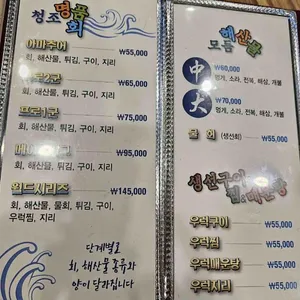 청조 명품회
아마추어 ₩55,000
회, 해산물, 튀김, 구이, 지리
2군 ₩65,000
회, 해산물, 튀김, 구이, 지리
프로1군 ₩75,000
회, 해산물, 튀김, 구이, 지리
₩95,000
회, 해산물, 튀김, 구이, 지리
월드시리즈 ₩145,000
회, 해산물, 물회, 튀김, 구이,
우럭찜, 지리
단계별로
회, 해산물 종류와
양이 달라집니다
모듬 해산물
中 ₩60,000
멍게, 소라, 전복, 해삼, 개불
大 ₩70,000
멍게, 소라, 전복, 해삼, 개불
물 회 (생선회) ₩55,000
생선구이
우럭구이 ₩55,000
우럭찜 ₩55,000
우럭매운탕 ₩55,000
우럭지리 ₩55,000